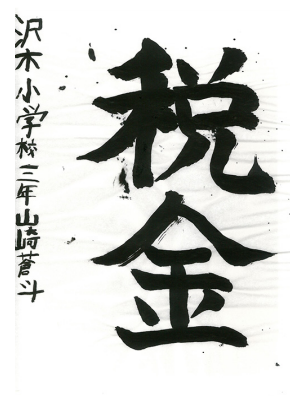 税金
沢木小学校三年山崎蒼斗